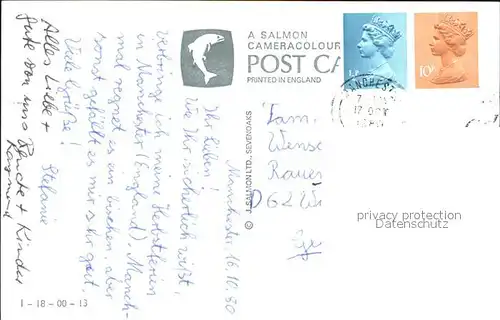 A SALMON
CAMERACOLOUR
POST CA
PRINTED IN ENGLAND
© J. SALMON LTD., SEVENOAKS
1-18-00-13
½
10
Manchester 16.10.80
Ihr Lieben!
Wie Ihr sicherlich wißt,
verbringe ich meine Herbstferien
in Manchester (England). Manch-
mal regnet es ein bißchen, aber
sonst gefällt es mir sehr gut.
Viele Grüße!
Stefanie
Alles Liebe +
Gute von uns
+ Kinder
Raymond
Fam.
Wense
Rauen
D 62 Wi
privacy protection
Datenschutz